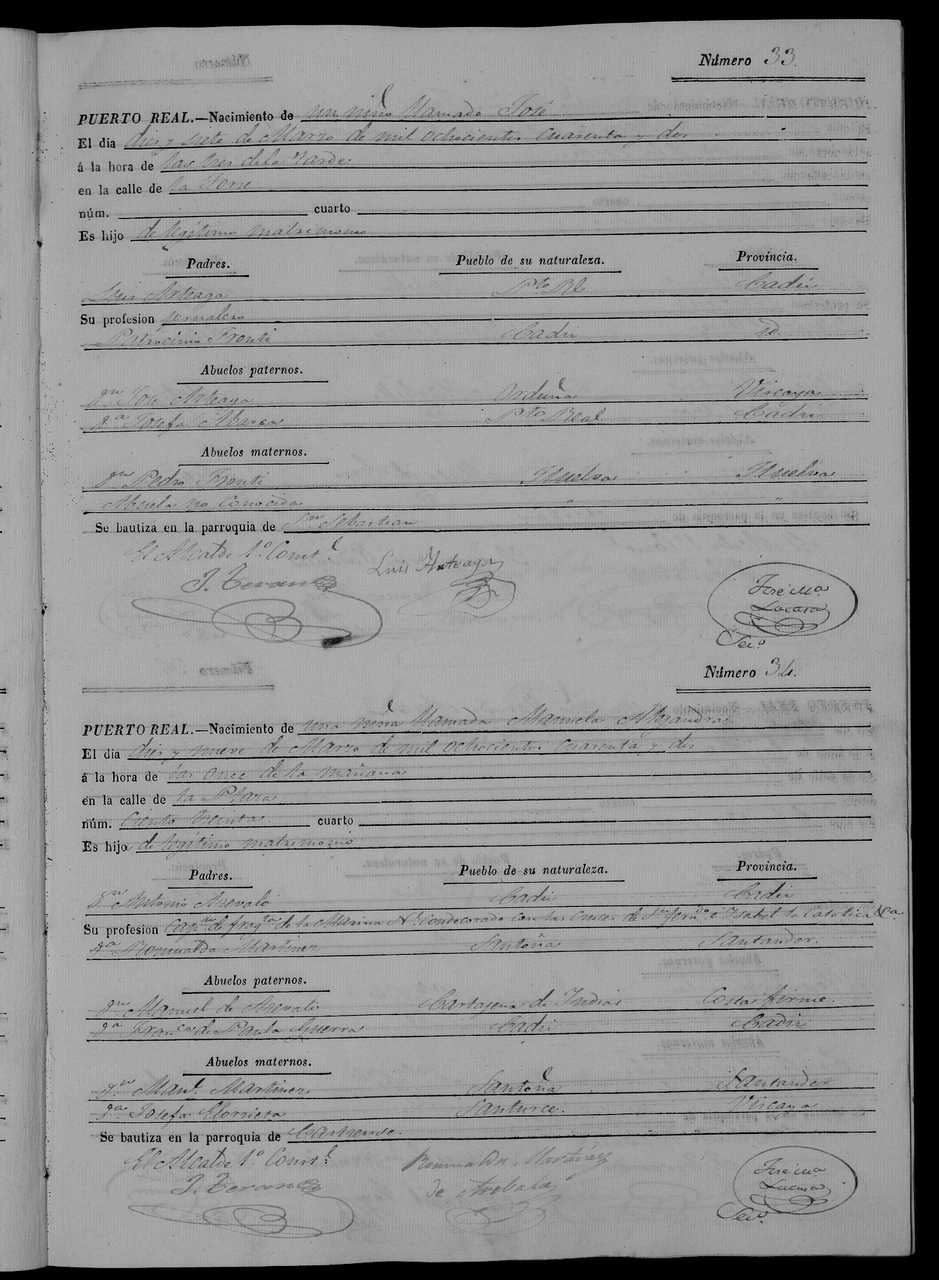 Número 33.
PUERTO REAL.—Nacimiento de un niño llamado José
El dia diez y siete de Marzo de mil ochocientos cuarenta y dos
á la hora de las tres de la tarde
en la calle de la Torre
núm. cuarto
Es hijo de legitimo matrimonio
Padres. Pueblo de su naturaleza. Provincia.
Luis Arteaga Pto Rl Cadiz
Su profesion jornalero
Patrocinio Cadiz id.
Abuelos paternos.
Dn José Arteaga Orduña Viscaya
Da Josefa Pto Real Cadiz
Abuelos maternos.
Dn Pedro Huelva Huelva
Abuela no conocida " "
Se bautiza en la parroquia de Sn Sebastian
El Alcalde 1º Constl
J. Teran Luis Arteaga José Ma
Lacasa
Seco
Número 34.
PUERTO REAL.—Nacimiento de una niña llamada Manuela Alejandra
El dia diez y nueve de Marzo de mil ochocientos cuarenta y dos
á la hora de las once de la mañana
en la calle de la Plaza
núm. ciento treinta cuarto
Es hijo de legitimo matrimonio
Padres. Pueblo de su naturaleza. Provincia.
Dn Antonio Arevalo Cadiz Cadiz
Su profesion Capn de fragta de la Marina Nl condecorado con las Cruces de Sn Ferndo é Isabel la Catolica &ca
Da Romualda Martinez Santoña Santander.
Abuelos paternos.
Dn Manuel de Arevalo Cartagena de Indias Costa firme.
Da Franca de Paula Guerra Cadiz Cadiz
Abuelos maternos.
Dn Manl Martinez Santoña Santander
Da Josefa Santurce. Viscaya
Se bautiza en la parroquia de Castrense.
El Alcalde 1º Constl Romualda Martinez José Ma
J. Teran de Arebalo Lacasa
Seco